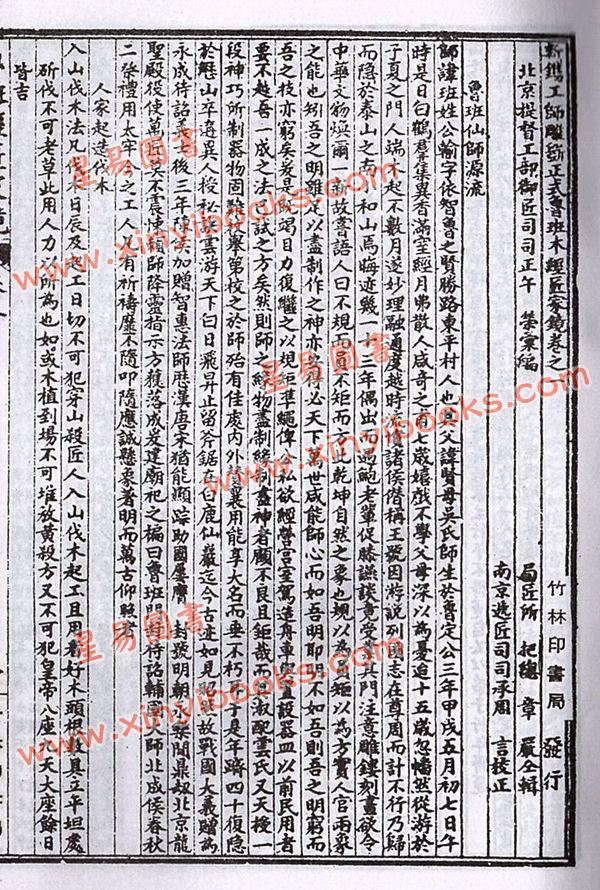 新鐫工師雕斵正式魯班木經匠家鏡卷之一
北京提督工部御匠司司正午 榮彙編
局匠所 把總 章 嚴仝輯
南京遞匠司司承周 言校正
竹林印書局 發行
魯班仙師源流
師諱班姓公輸字依智魯之賢勝路東平村人也其父諱賢母吳氏師生於魯定公三年甲戌五月初七日午
時是日白鶴羣集異香滿室經月弗散人咸奇之甫七歲嬉戲不學父母深以為憂迨十五歲忽幡然從游於
子夏之門人端木起不數月遂妙理融通度越時流憤諸侯僭稱王號因游說列國志在尊周而計不行乃歸
而隱於泰山之南小和山焉晦迹幾一十三年偶出而遇鮑老輩促膝讌談竟受業其門注意雕鏤刻畫欲令
中華文物煥爾一新故嘗語人曰不規而員不矩而方此乾坤自然之象也規以為員矩以為方實人官兩象
之能也矧吾之明雖足以盡制作之神亦安得必天下萬世咸能師心而如吾明耶明不如吾則吾之明窮而
吾之技亦窮矣爰是既竭目力復繼之以規矩準繩俾公私欲經營宮室駕造舟車與置設器皿以前民用者
要不越吾一成之法已試之方矣然則師之緣物盡制緣制盡神者顧不良且鉅哉而其淑配雲氏又天授一
段神巧所制器物固難枚舉第較之於師殆有佳處內外贊襄用能享大名而垂不朽 於是年躋四十復隱
於歷山卒遘異人授秘訣雲游天下白日飛昇止留斧鋸在白鹿仙巖迄今古迹如見昭然故戰國大義贈為
永成待詔義士後三年陳侯加贈智惠法師歷漢唐宋猶能顯踪助國屢膺封號明朝永樂間鼎刱北京龍
聖殿役使萬匠莫不震悚賴師降靈指示方獲落成爰建廟祀之匾曰魯班門封待詔輔國大師北成侯春秋
二祭禮用太牢今之工人凡有祈禱靡不隨叩隨應誠懸象著明而萬古仰照者
人家起造伐木
入山伐木法凡伐木日辰及起工日切不可犯穿山殺匠人入山伐木起工且用看好木頭根數具立平坦處
斫伐不可老草此用人力以所為也如或木植到場不可堆放黃殺方又不可犯皇帝八座九天大座餘日
皆吉
星易圖書
www.xinyibooks.com
星易圖書
www.xinyibooks.com
星易圖書
www.xinyibooks.com